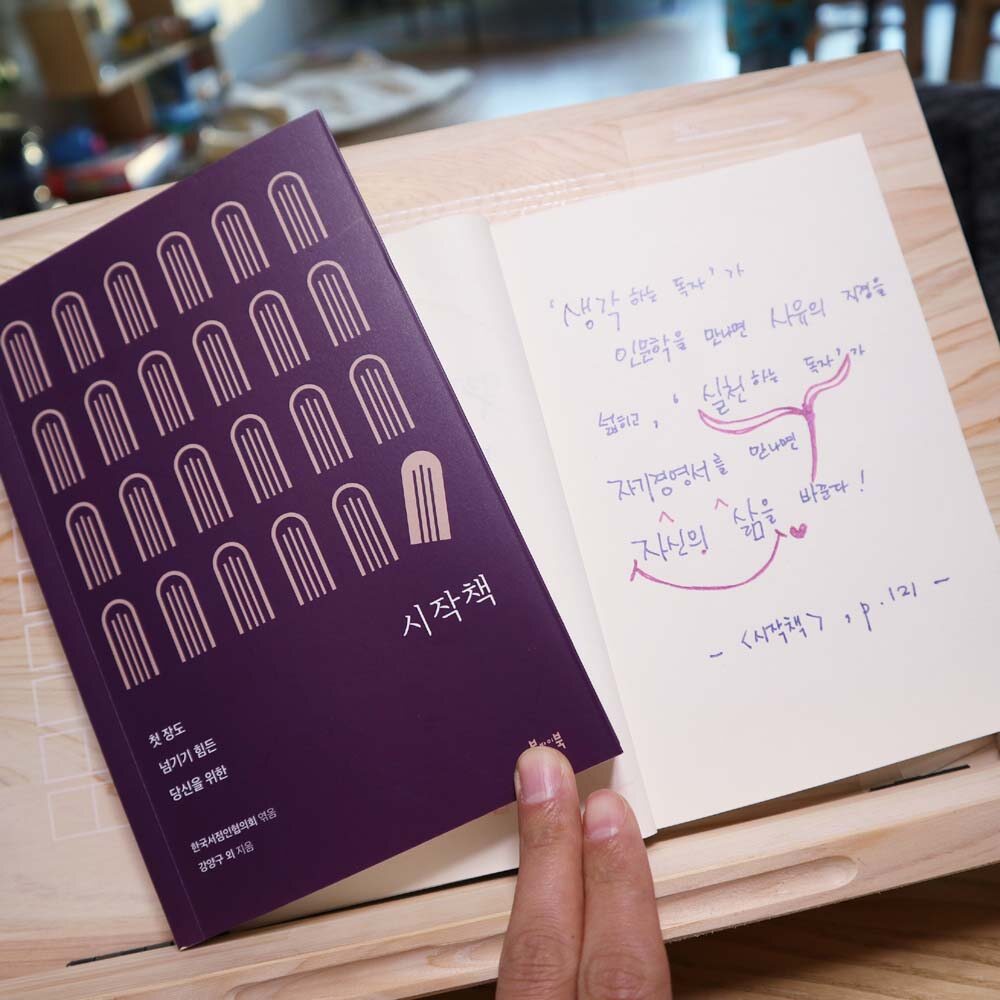 시작책
첫 장도
넘기기 힘든
당신을 위한
한국서점인협의회 엮음
강양구 외 지음
'생각하는 독자'가
인문학을 만나면 사유의 지경을
넓히고, '실천하는 독자'가
자기경영서를 만나면
자신의 삶을 바꾼다!
- <시작책>, p.121 -